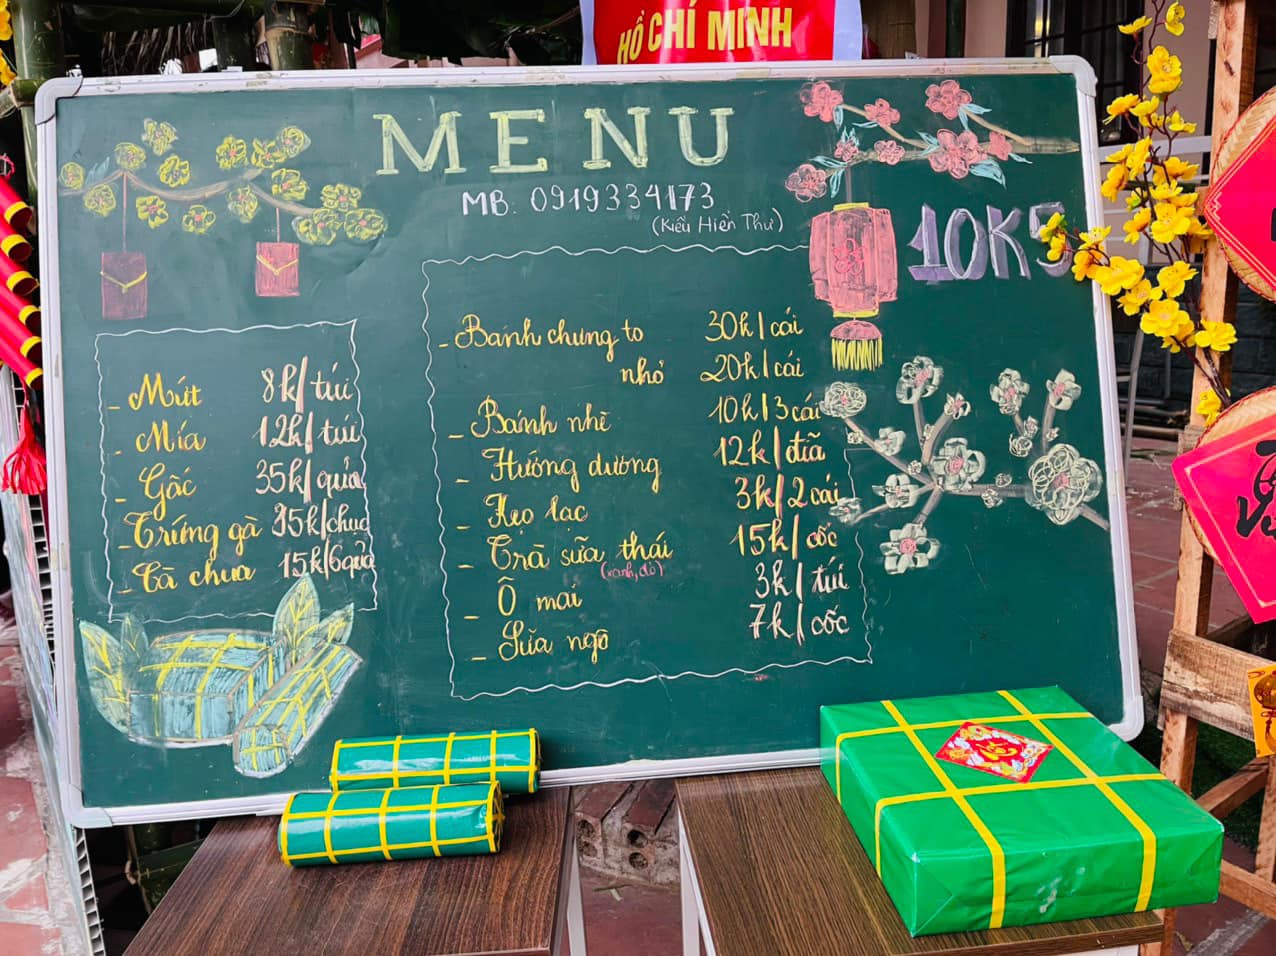 HỒ CHÍ MINH
MENU
MB. 0919334173
(Kiều Hiền Thư)
10K5
- Mứt 8k/túi
- Mía 12k/túi
- Gấc 35k/quả
- Trứng gà 35k/chục
- Cà chua 15k/6quả
- Bánh chưng to 30k/cái
nhỏ 20k/cái
- Bánh nhè 10k/3cái
- Hướng dương 12k/đĩa
- Kẹo lạc 3k/2 cái
- Trà sữa thái 15k/cốc
(xanh, đỏ)
- Ô mai 3k/túi
- Sữa ngô 7k/cốc